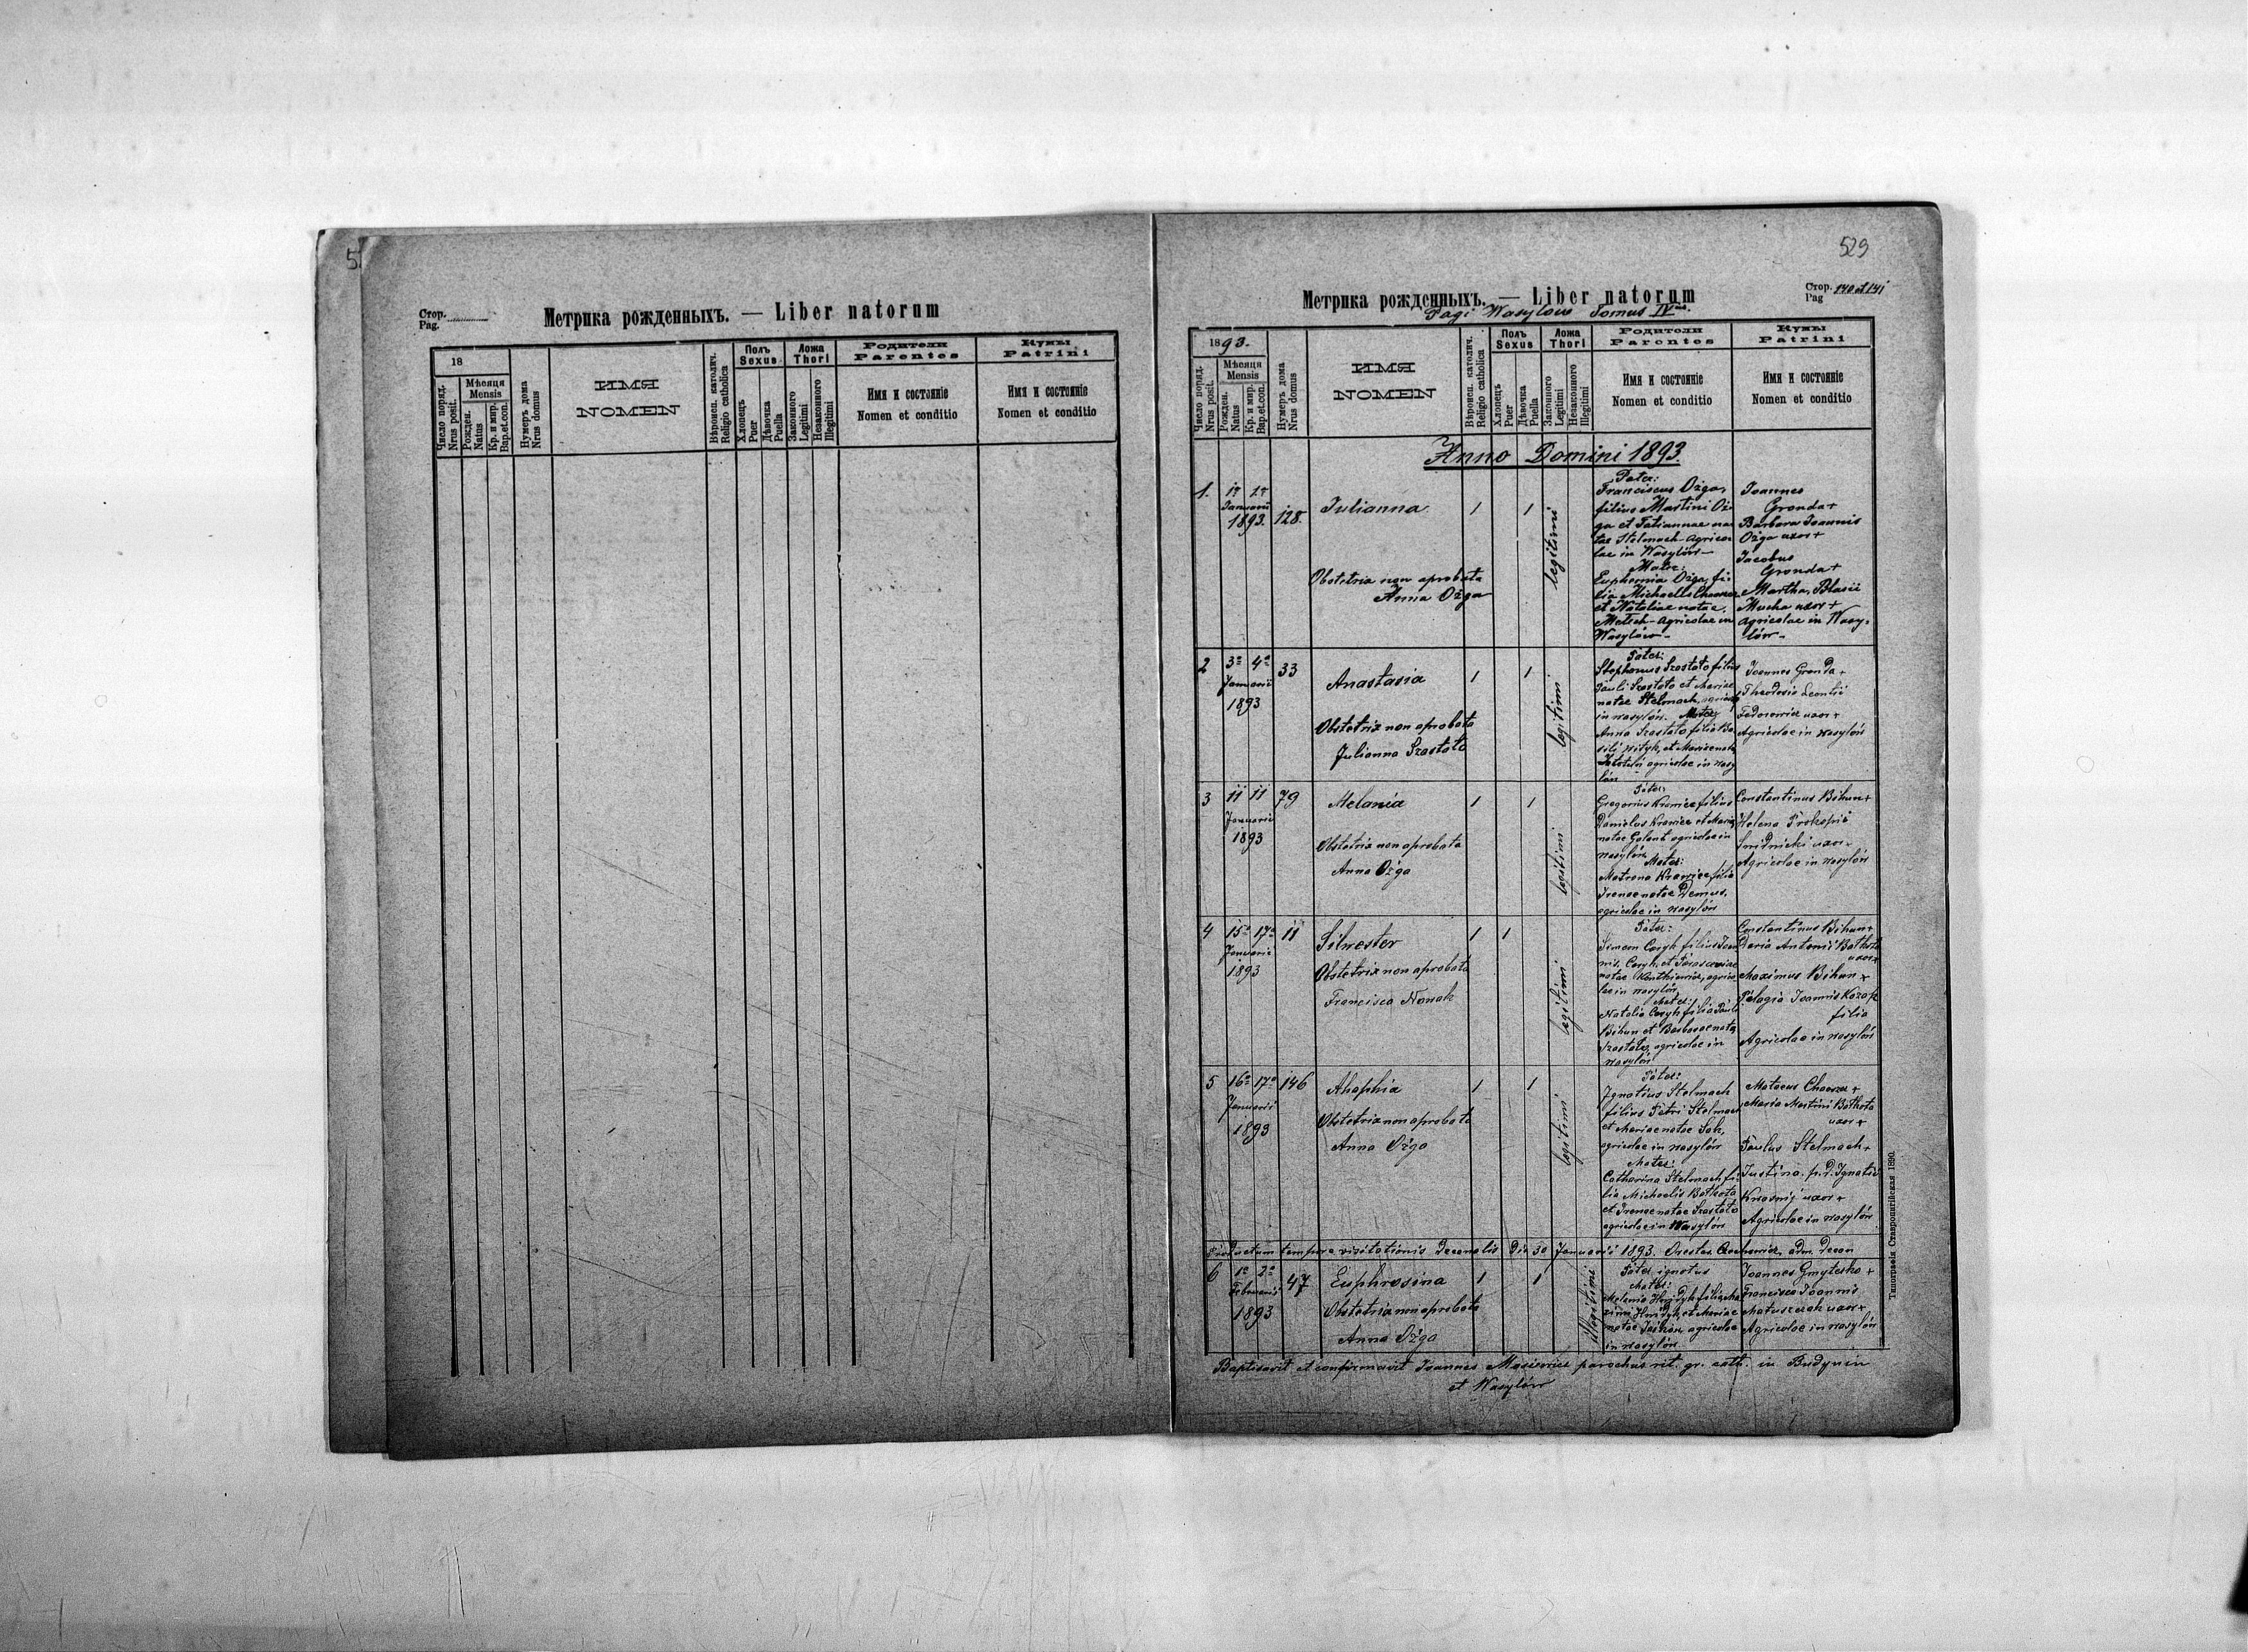 5
Стор.
Pag.
Метрика рожденныхъ. — Liber natorum
18
Число поряд.
Nrus posit.
Мѣсяця
Mensis
Рожден.
Natus
Кр. и мир.
Bap. et con.
Нумеръ дома
Nrus domus
ИМЯ
NOMEN
Вѣроиси. католич.
Religio catholica
Полъ
Sexus
Хлопецъ
Puer
Дѣвочка
Puella
Ложа
Thori
Законного
Legitimi
Незаконного
Illegitimi
Родители
Parentes
Имя и состоянiе
Nomen et conditio
Кумы
Patrini
Имя и состоянiе
Nomen et conditio
529
Метрика рожденныхъ. — Liber natorum
Стор.
Pag
140 et 141
Pagi Wasylow Tomus IV
1893.
Число поряд.
Nrus posit.
Мѣсяця
Mensis
Рожден.
Natus
Кр. и мир.
Bap. et con.
Нумеръ дома
Nrus domus
ИМЯ
NOMEN
Вѣроиси. католич.
Religio catholica
Полъ
Sexus
Хлопецъ
Puer
Дѣвочка
Puella
Ложа
Thori
Законного
Legitimi
Незаконного
Illegitimi
Родители
Parentes
Имя и состоянiе
Nomen et conditio
Кумы
Patrini
Имя и состоянiе
Nomen et conditio
Anno Domini 1893.
1.
Januarii
1893.
128.
Julianna
Obstetrix non aprobata
Anna Ożga
1
1
legitimi
Pater:
Franciscus Ożga,
filius Martini Oż-
ga et Tatiannae na-
tae Stelmach - Agrico-
lae in Wasylów -
Mater:
Euphemia Ożga, fi-
lia Michaelis
et Nataliae natae
agricolae in
Wasylów -
Joannes
Gronda +
Barbara Joannis
Ożga uxor +
Jacobus
Gronda +
Martha, Blasii
Mucha uxor +
Agricolae in Wasy-
lów -
2
3a 4a
Januarii
1893
33
Anastasia
Obstetrix non aprobata
Julianna Szostato
1
1
legitimi
Pater:
Stephanus Szostato filius
Pauli Szostato et Mariae
natae Stelmach, agricolae
in Wasylów. Mater:
Anna Szostato filia Ba-
silii et Mariae natae
agricolae in Wasy-
lów
Joannes Gronda +
Theodosia Leontii
Fedorowicz uxor +
Agricolae in Wasylów
3
11 11
Januarii
1893
79
Melania
Obstetrix non aprobata
Anna Ożga
1
1
legitimi
Pater:
Gregorius Krawiec filius
Danielus Krawiec et Mariae
natae Galant agricolae in
Wasylów Mater:
Matrona Krawiec filia
Irenae natae Demus,
agricolae in Wasylów
Constantinus Bihun +
Helena Prokopii
Smidnicki uxor +
Agricolae in Wasylów
4
15a 17a
Januarii
1893
11
Silvester
Obstetrix non aprobata
Francisca Nowak
1
1
legitimi
Pater:
Simeon Coryk filius Joan-
nis Coryk, et Parasceviae
natae agrico-
lae in Wasylów
Mater:
Natalia Coryk filia Pauli
Bihun et Barbarae natae
Szostato, agricolae in
Wasylów
Constantinus Bihun +
Daria Antonii Bothota
uxor +
Maximus Bihun +
Pelagia Joannis Kozak
filia
Agricolae in Wasylów
5
16a 17a
Januarii
1893
146
Ahaphia
Obstetrix non aprobata
Anna Ożga
1
1
legitimi
Pater:
Ignatius Stelmach
filius Petri Stelmach
et Mariae natae Sak,
agricolae in Wasylów
Mater:
Catharina Stelmach fi-
lia Michaelis Bothota
et Irenae natae Szostato
agricolae in Wasylów
Mataeus +
Maria Martini Bothota
uxor +
Paulus Stelmach +
Justina p. d. Ignatii
Kwasnij uxor +
Agricolae in Wasylów
Productum tempore visitationis Decanalis Die 30 Januarii 1893. Orestes adm. Decan
6
1a 2a
Februarii
1893
47
Euphrosina
Obstetrix non aprobata
Anna Ożga
1
1
illegitimi
Pater ignotus
Mater:
Melania filia Ma-
ximi et Mariae
natae agricolae
in Wasylów
Joannes Gmyterko +
Francisca Joannis
Matuszczak uxor +
Agricolae in Wasylów
Baptisavit et confirmavit Joannes parochus rit. gr. cath. in Budynin
et Wasylów
Типографія Ставропигійская 1890.